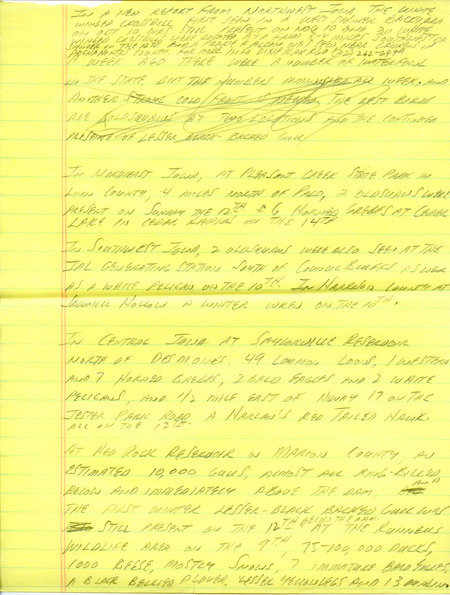 IN A NEW REPORT FROM NORTHWEST IOWA, THE WHITE
WINGED CROSSBILL FIRST SEEN IN A WEST BACKYARD
ON OCT 10 WAS STILL PRESENT ON NOV 10 AND 20 WHITE
A WEEK AGO THERE WERE A NUMBER OF WATERFOWL
IN THE STATE, BUT THE NUMBERS ALL WEEK. AND
ANOTHER STRONG COLD FRONT IS THE BEST BIRDS
ARE OLDSQUAWS AT TWO LOCATIONS AND THE CONTINUED
PRESENCE OF LESSER BLACK-BACKED GULL
IN NORTHEAST IOWA, AT PLEASANT CREEK STATE PARK IN
LINN COUNTY, 4 MILES NORTH OF PALO, 2 OLDSQUAWS WERE
PRESENT ON SUNDAY THE 12TH & 6 HORNED GREBES AT CEDAR
LAKE IN CEDAR RAPIDS ON THE 14TH
IN SOUTHWEST IOWA, 2 OLDSQUAWS WERE ALSO SEEN AT THE
GENERATING STATION SOUTH OF COUNCIL BLUFFS AS WELL
AS A WHITE PELICAN ON THE 10TH. IN HARRISON COUNTY AT
SAWMILL HOLLOW A WINTER WREN ON THE
IN CENTRAL IOWA AT SAYLORVILLE RESERVOIR
NORTH OF DES MOINES, 49 COMMON LOONS, 1 WESTERN
AND 7 HORNED GREBES, 2 BALD EAGLES AND 2 WHITE
PELICANS, AND 1/2 MILE EAST OF HIWAY 17 ON THE
JESTER PARK ROAD, A HARLAN'S RED TAILED HAWK.
ALL ON THE 12TH.
AT RED ROCK RESERVOIR IN MARION COUNTY AN
ESTIMATED 10,000 GULLS, ALMOST ALL RING-BILLED,
BELOW AND IMMEDIATELY ABOVE THE DAM, AND
THE FIRST WINTER LESSER-BLACK BACKED GULL WAS
STILL PRESENT ON THE 12TH BELOW THE DAM. AT THE RUNNELLS
WILDLIFE AREA ON THE 9TH, 75-100,000 DUCKS,
1000 GEESE, MOSTLY SNOWS, 7 IMMATURE BALD EAGLES,
A BLACK BELLIED PLOVER, LESSER YELLOWLEGS AND 13 DUNLIN.